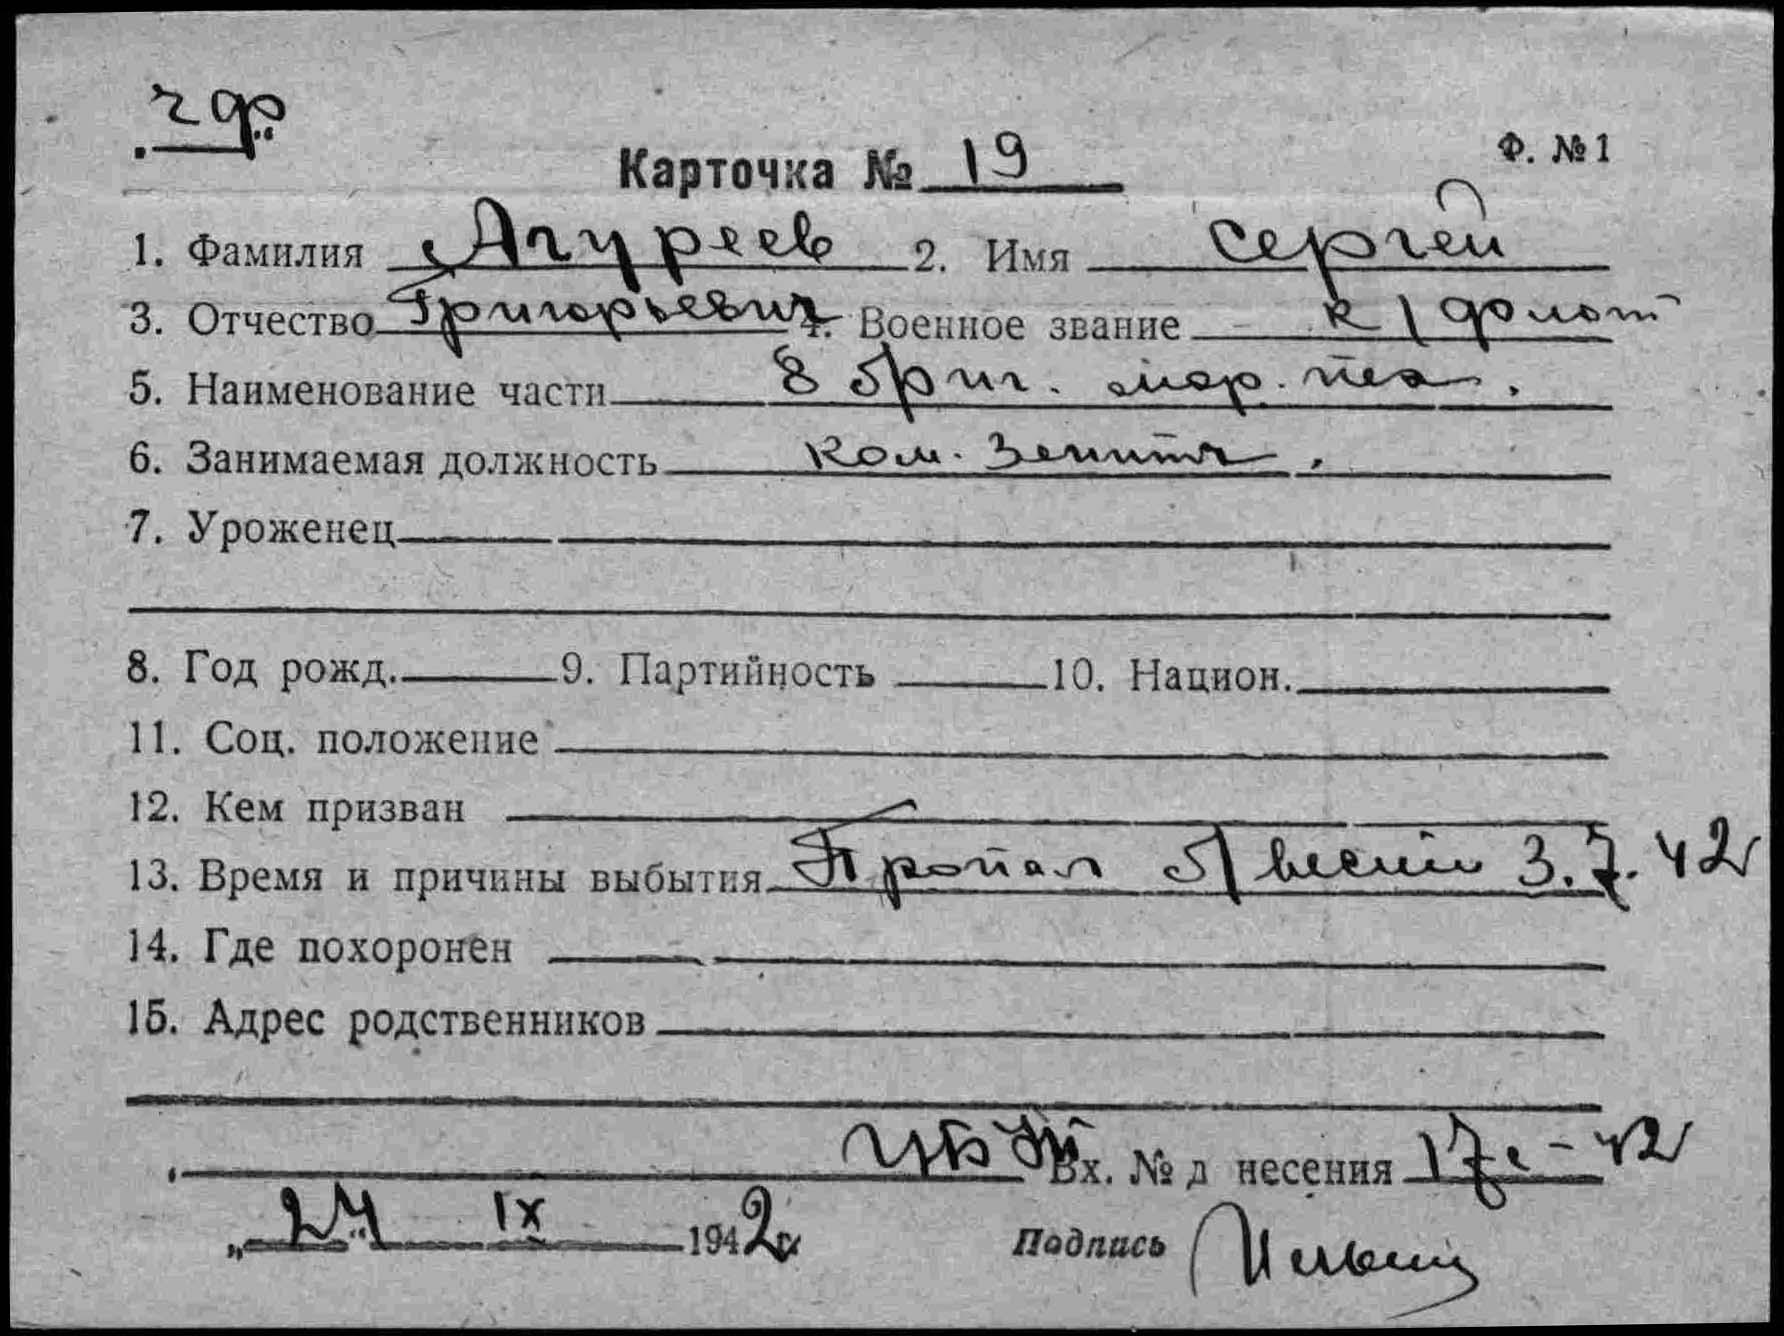 чф
Карточка № 19 Ф. № 1
1. Фамилия Агуреев 2. Имя Сергей
3. Отчество Григорьевич 4. Военное звание к/флот
5. Наименование части 8 бриг. мор. пех.
6. Занимаемая должность ком. зенитч.
7. Уроженец
8. Год рожд. 9. Партийность 10. Национ.
11. Соц. положение
12. Кем призван
13. Время и причины выбытия Пропал б/вести 3.7.42
14. Где похоронен
15. Адрес родственников
Вх. № д несения 17с-42
„24“ IX 1942г. Подпись